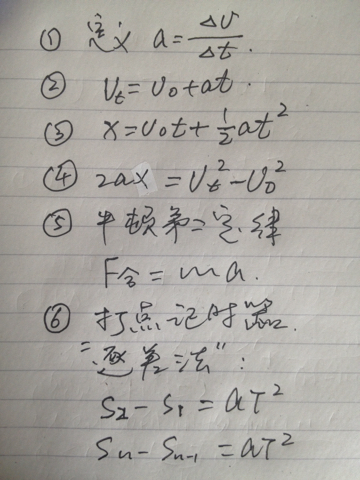 ① 定义 a=Δv/Δt.
② Vt=V0+at.
③ x=v0t+½at²
④ 2ax=Vt²-V0²
⑤ 牛顿第二定律
F合=ma.
⑥ 打点记时器.
"逐差法":
S2-S1=aT²
Sn-Sn-1=aT²